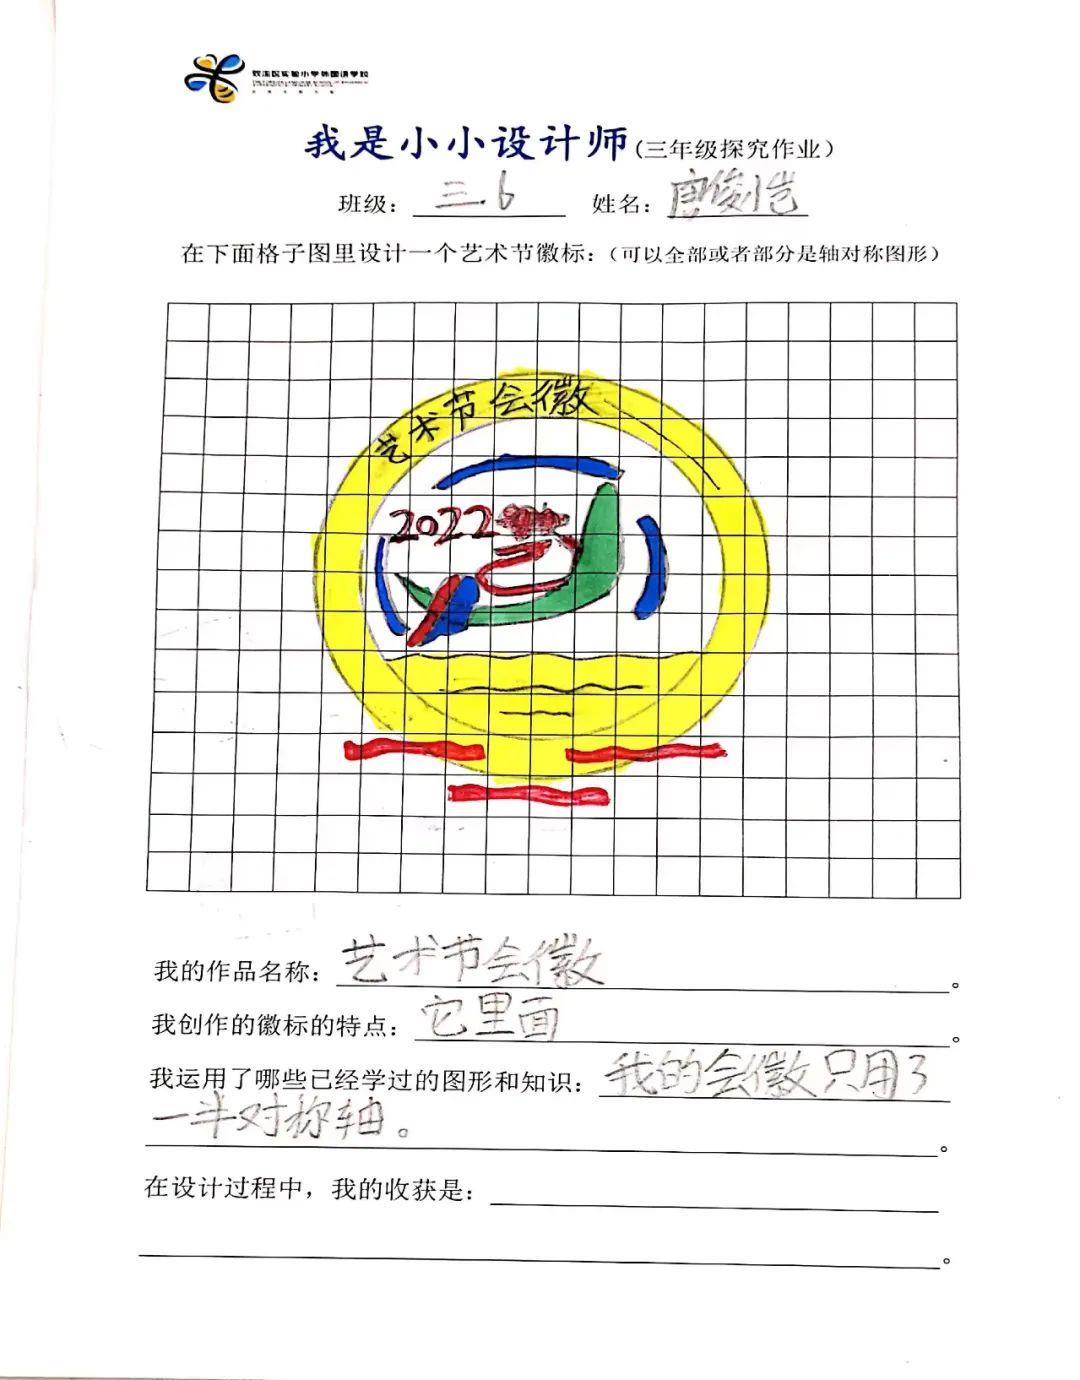 双流区实验小学外国语学校
我是小小设计师(三年级探究作业)
班级：三.6 姓名：唐俊恺
在下面格子图里设计一个艺术节徽标：(可以全部或者部分是轴对称图形)
艺术节会徽
2022
我的作品名称：艺术节会徽。
我创作的徽标的特点：它里面。
我运用了哪些已经学过的图形和知识：我的会徽只用了
一半对称轴。。
在设计过程中，我的收获是：
。